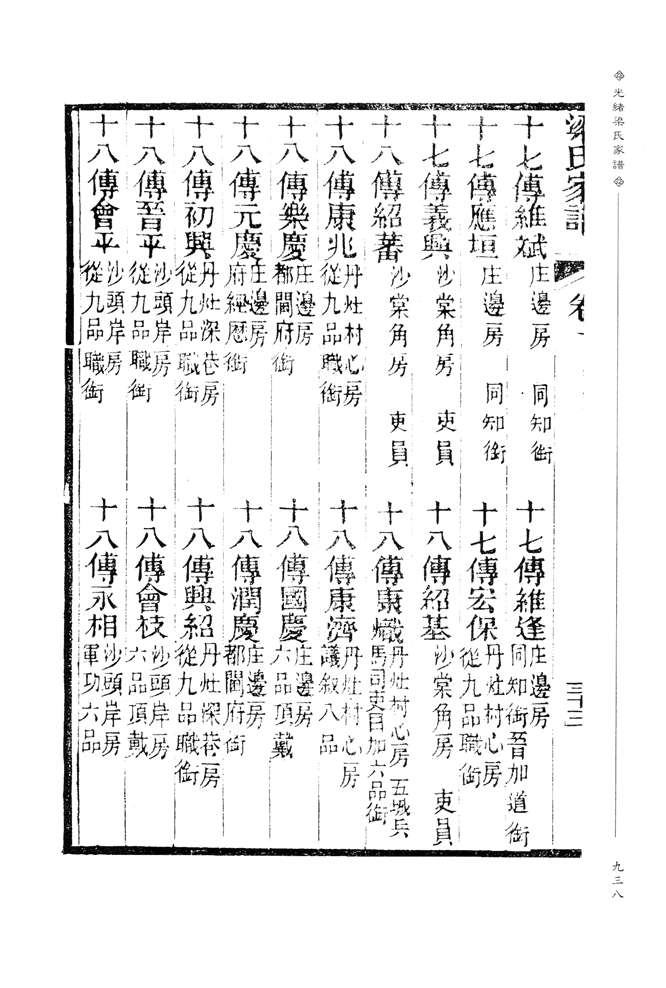 光緒梁氏家譜
九三八
梁氏家譜 卷 三十三
十七傳維斌 庄邊房 同知銜
十七傳維逢 庄邊房 同知銜晉加道銜
十七傳應垣 庄邊房 同知銜
十七傳宏保 丹灶村心房 從九品職銜
十七傳義興 沙棠角房 吏員
十八傳紹基 沙棠角房 吏員
十八傳紹蕃 沙棠角房 吏員
十八傳康熾 丹灶村心房 五城兵馬司吏目加六品銜
十八傳康兆 丹灶村心房 從九品職銜
十八傳康濟 丹灶村心房 議敘八品
十八傳樂慶 庄邊房 都閫府銜
十八傳國慶 庄邊房 六品頂戴
十八傳元慶 庄邊房 府經歷銜
十八傳潤慶 庄邊房 都閫府銜
十八傳初興 丹灶深巷房 從九品職銜
十八傳興紹 丹灶深巷房 從九品職銜
十八傳晉平 沙頭岸房 從九品職銜
十八傳會枝 沙頭岸房 六品頂戴
十八傳會平 沙頭岸房 從九品職銜
十八傳永相 沙頭岸房 軍功六品